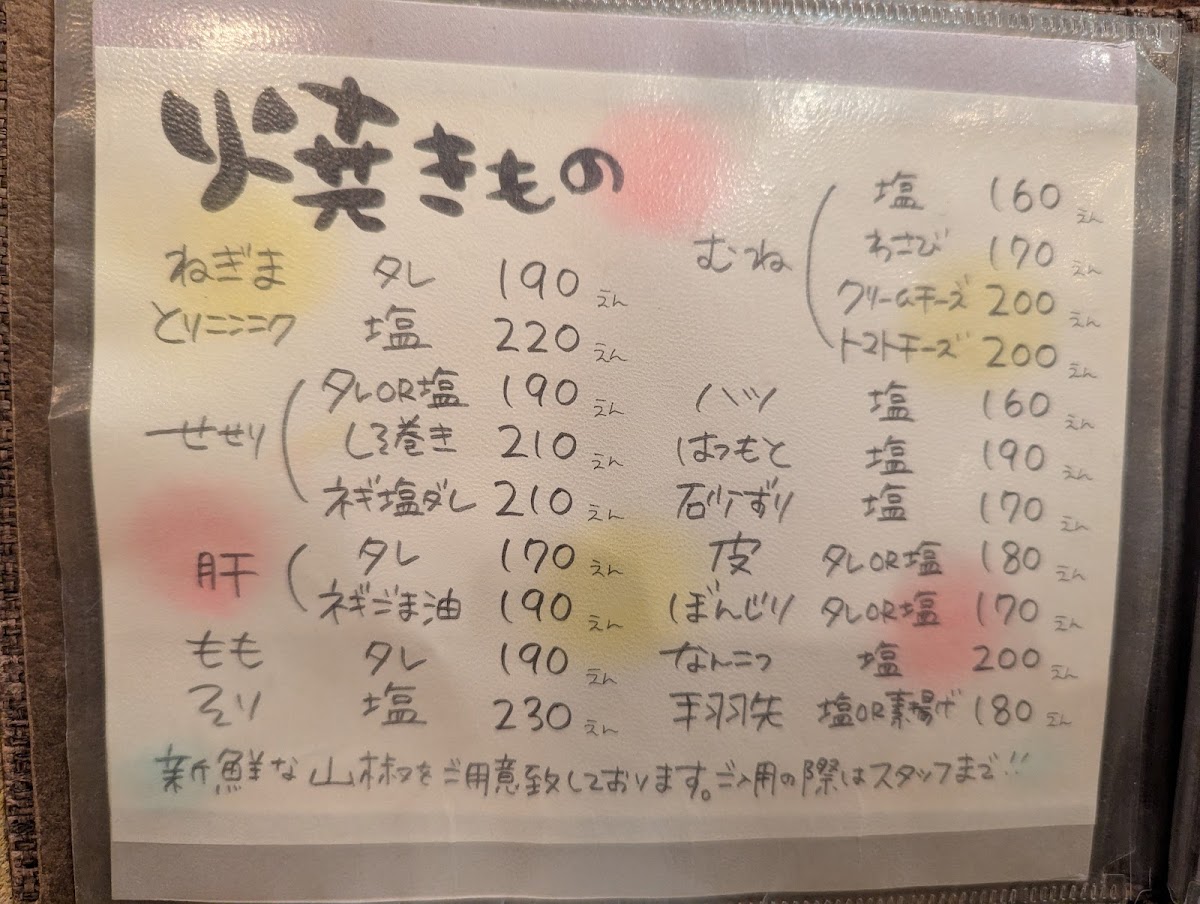 焼きもの
ねぎま タレ 190えん
とりニンニク 塩 220えん
せせり
タレOR塩 190えん
しそ巻き 210えん
ネギ塩ダレ 210えん
肝
タレ 170えん
ネギごま油 190えん
もも タレ 190えん
そり 塩 230えん
むね
塩 160えん
わさび 170えん
クリームチーズ 200えん
トマトチーズ 200えん
ハツ 塩 160えん
はつもと 塩 190えん
砂ずり 塩 170えん
皮 タレOR塩 180えん
ぼんじり タレOR塩 170えん
なんこつ 塩 200えん
手羽先 塩OR素揚げ 180えん
新鮮な山椒をご用意致しております。ご入用の際はスタッフまで!!